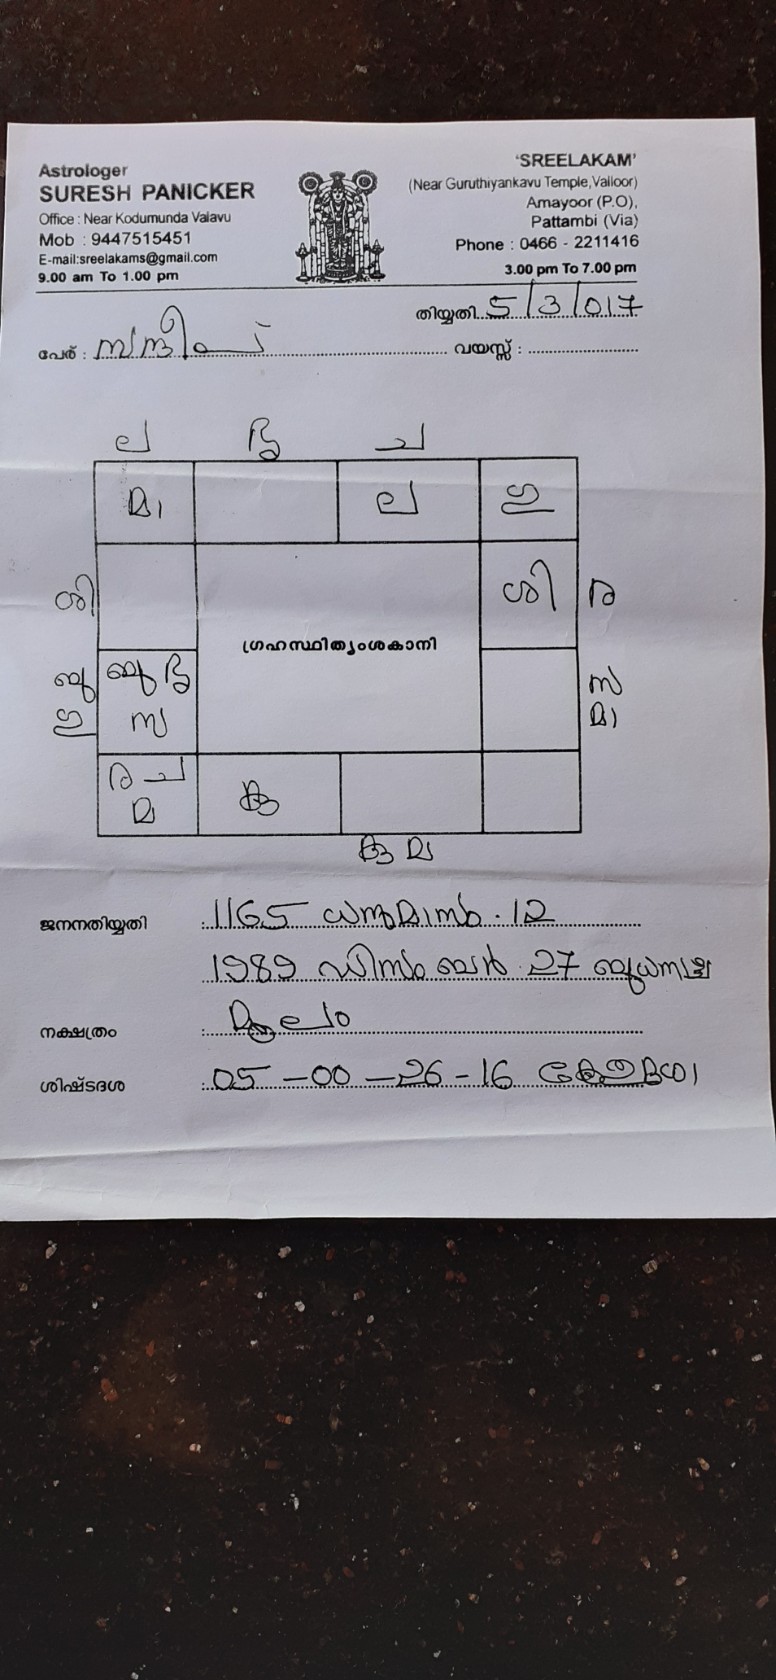 Astrologer
SURESH PANICKER
Office : Near Kodumunda Valavu
Mob : 9447515451
E-mail:sreelakams@gmail.com
9.00 am To 1.00 pm
'SREELAKAM'
(Near Guruthiyankavu Temple,Valloor)
Amayoor (P.O),
Pattambi (Via)
Phone : 0466 - 2211416
3.00 pm To 7.00 pm
തിയ്യതി 5/3/017
പേര് : സന്ദീപ് വയസ്സ് :
ല ച
മാ ല ഗു
ശി ശി ര
ഗ്രഹസ്ഥിത്യംശകാനി
ബു ബു സ
ഗു സ മാ
ര ച
മ കു
കു മ
ജനനതിയ്യതി : 1165 ധനുമാസം . 12
1989 ഡിസംബർ 27 ബുധനാഴ്ച
നക്ഷത്രം : മൂലം
ശിഷ്ടദശ : 05 - 00 - 26 - 16 കേതുദശാ